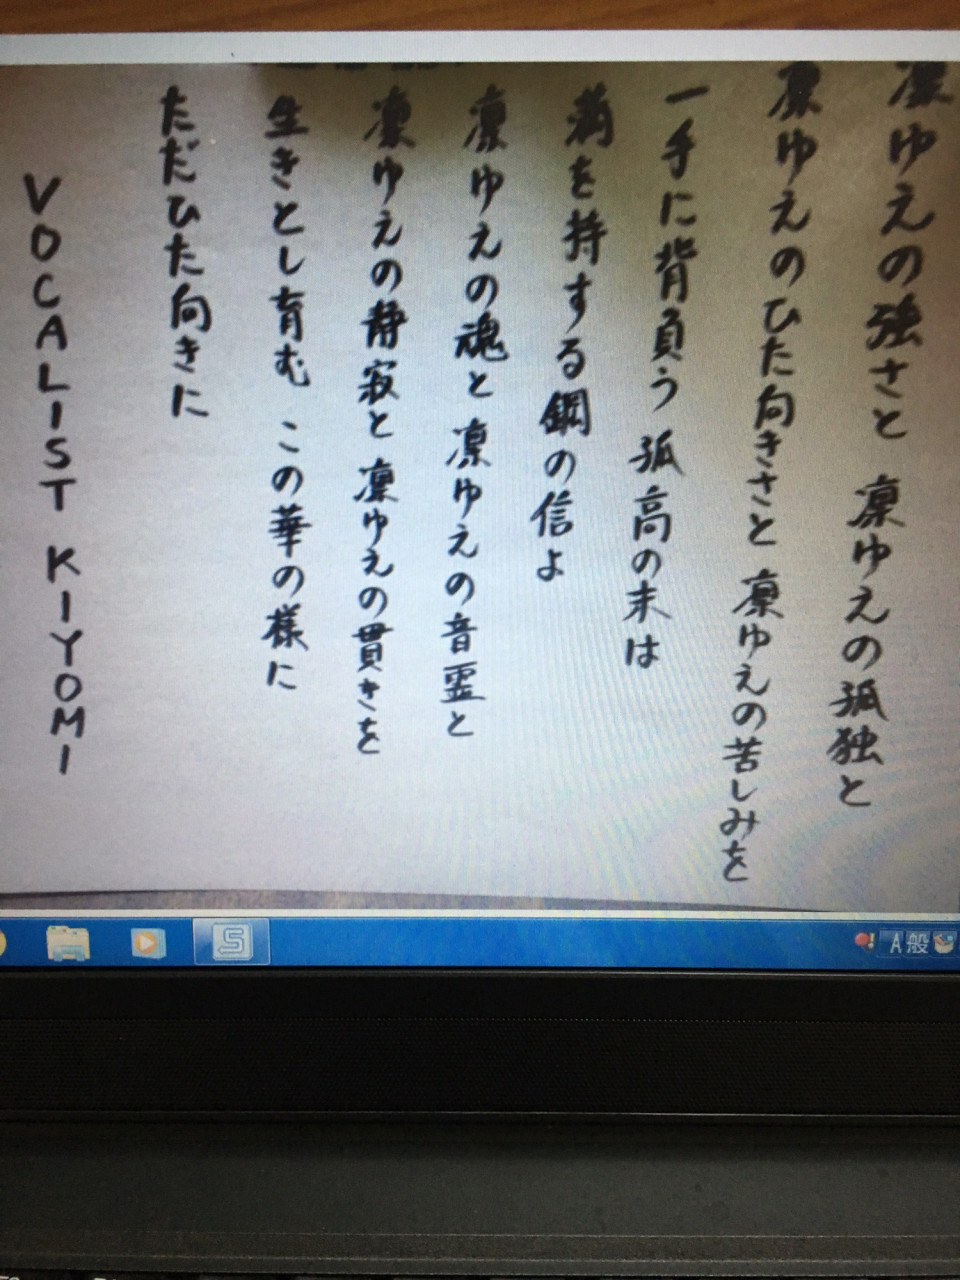 凛ゆえの強さと 凛ゆえの孤独と
凛ゆえのひた向きさと 凛ゆえの苦しみを
一手に背負う 孤高の末は
満を持する鋼の信よ
凛ゆえの魂と 凛ゆえの音霊と
凛ゆえの静寂と 凛ゆえの貫きを
生きとし育む この華の様に
ただひた向きに
VOCALIST KIYOMI
A 般